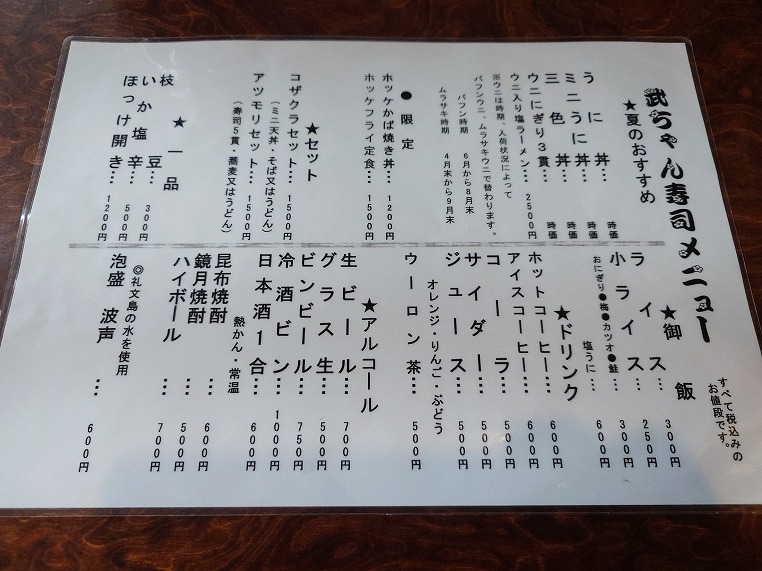 武ちゃん寿司メニュー
★夏のおすすめ
うに丼… 時価
ミニうに丼… 時価
三色丼… 時価
ウニにぎり3貫… 時価
ウニ入り塩ラーメン… 2500円
※ウニは時期、入荷状況によって
バフンウニ、ムラサキウニで替わります。
バフン時期 6月から8月末
ムラサキ時期 4月末から9月末
●限定
ホッケかば焼き丼… 1200円
ホッケフライ定食… 1500円
★セット
コザクラセット… 1500円
(ミニ天丼・そば又はうどん)
アツモリセット… 1500円
(寿司5貫・蕎麦又はうどん)
★一品
枝豆… 300円
いか塩辛… 500円
ほっけ開き… 1200円
すべて税込みの
お値段です。
★御飯
ライス… 300円
小ライス… 250円
おにぎり●梅●カツオ●鮭… 300円
塩うに… 600円
★ドリンク
ホットコーヒー… 600円
アイスコーヒー… 600円
コーラ… 500円
サイダー… 500円
ジュース… 500円
オレンジ・りんご・ぶどう
ウーロン茶… 500円
★アルコール
生ビール… 700円
グラス生… 500円
ビンビール… 750円
冷酒ビン… 1000円
日本酒1合… 500円
熱かん・常温
昆布焼酎… 600円
鏡月焼酎… 500円
ハイボール… 700円
◎礼文島の水を使用
泡盛 波声… 600円